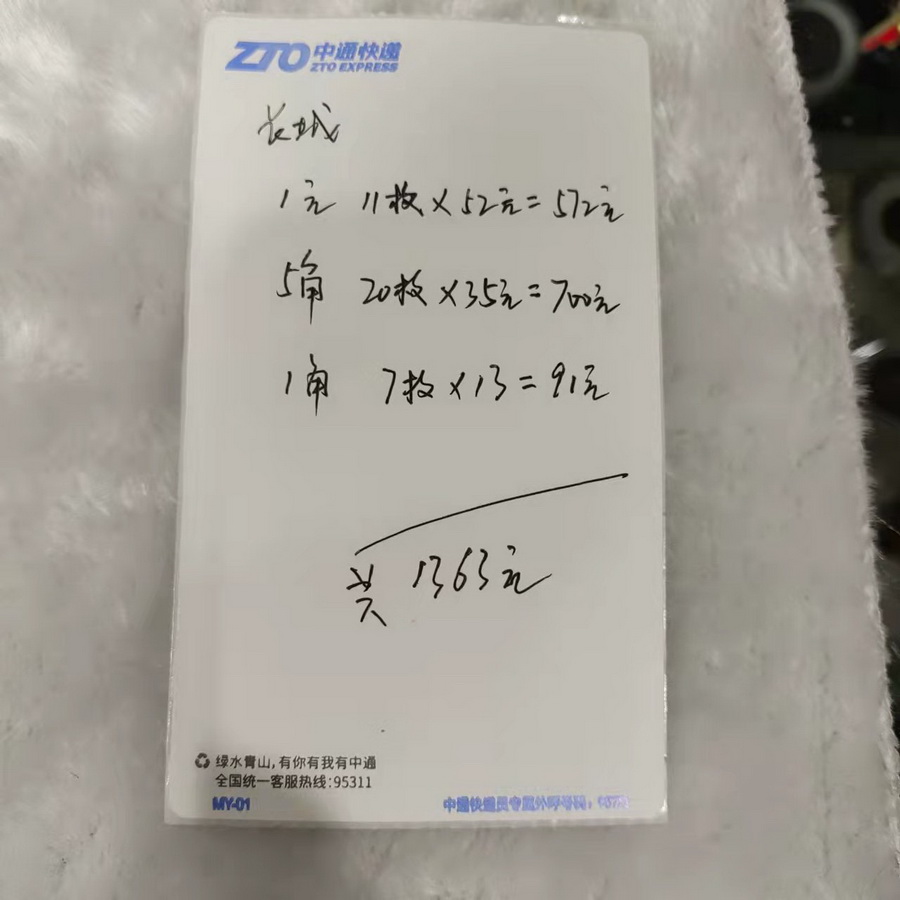 ZTO 中通快递
ZTO EXPRESS
长城
1元 11枚×52元=572元
5角 20枚×35元=700元
1角 7枚×13=91元
共 1363元
绿水青山,有你有我有中通
全国统一客服热线:95311
MY-01
中通快递员专属外呼号码: